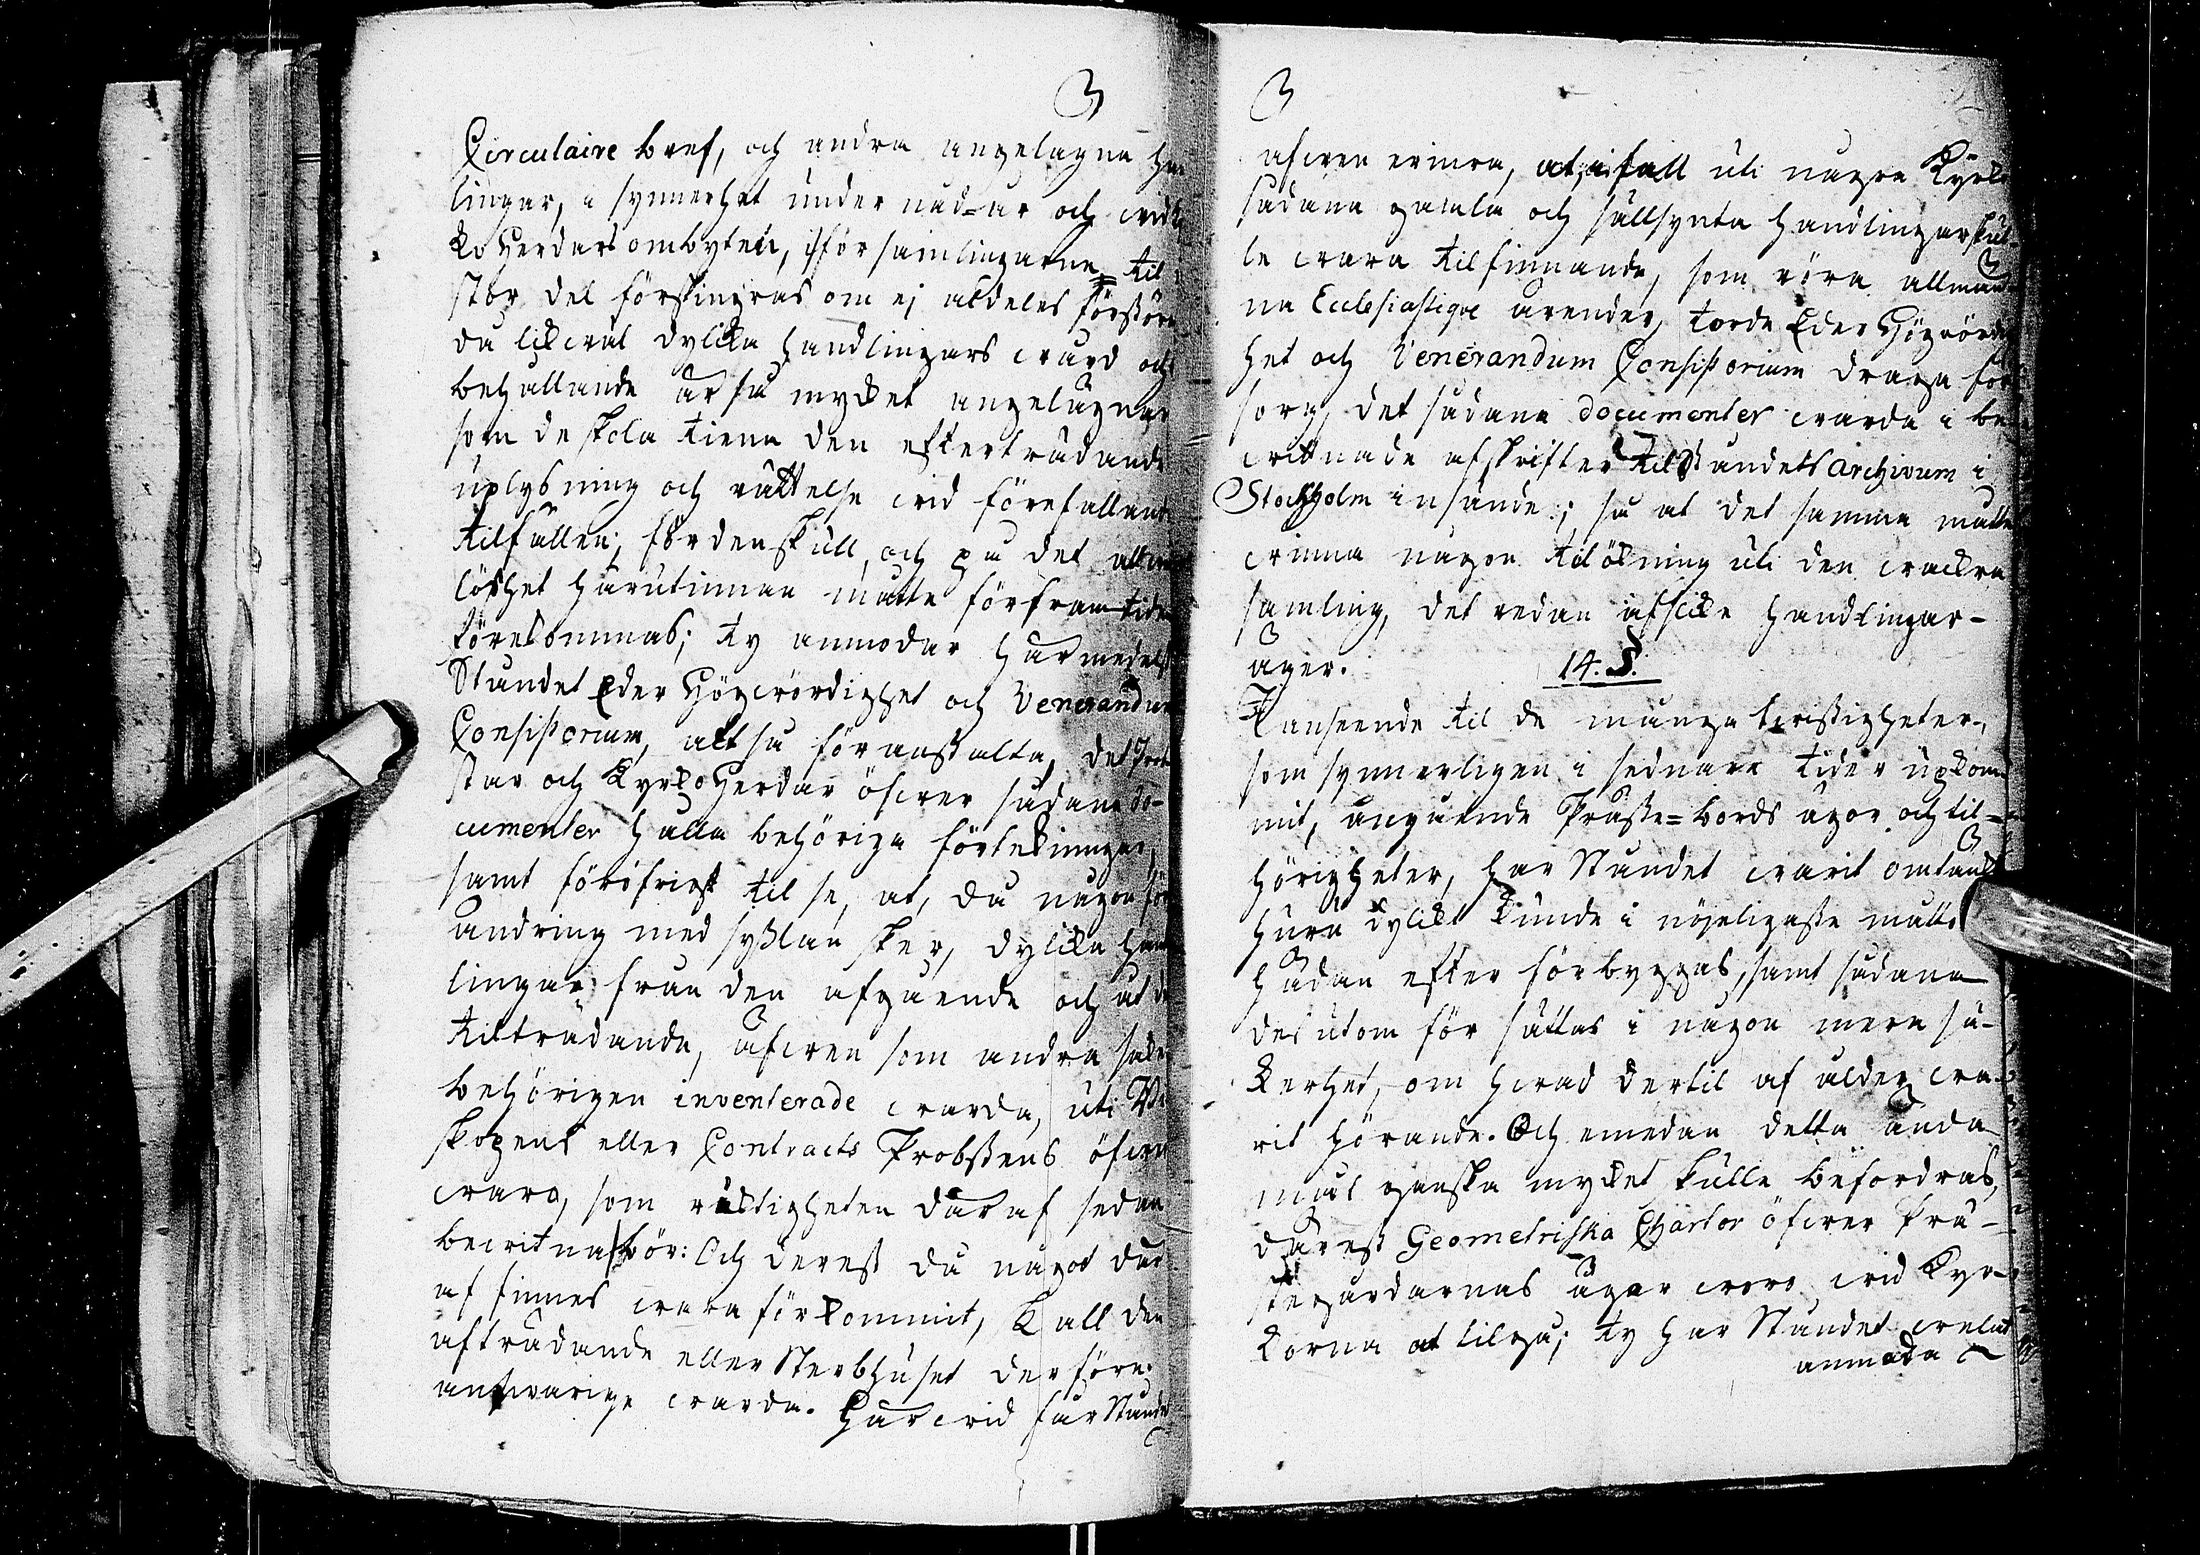 Circulaire bref, och andra angelägna han
lingar, i synnerhet under nåd=år och wid Ky
ko Herdars ombyten, i församlingarne til
stor del förskingras om ej aldeles förstöras
då likwäl dylika handlingars wård och
behållande är så mycket angelägnare
som de skola tiena den efterträdande
uplysning och rättelse wid förefallande
tilfällen; fördenskull, och på det all wård
löshet härutinnan måtte för framtiden
förekommas; ty anmodar härmedelst
Ståndet Eder Högwördighet och Venerandum
Consistorium, altså föranstalta, det Prob
star och KyrkoHerdar öfwer sådane do-
cumenter hålla behöriga förtekningar,
samt föröfrigt tilse, at, då någon för
ändring med syslan sker, dylika hand
lingar från den afgående och åt den
tilträdande, äfwen som andra saker
behörigen inventerade warda, uti Bi
skopens eller Contracts Probstens öfwer
waro, som riktigheten däraf sedan
bewitna bör: Och derest då något där
af finnes wara förkommit, skall den
afträdande eller Sterbhuset derföre
answarige warda. Härwid får Ståndet
äfwen erinra, at, ifall uti någre Kyrko
sådana gamla och sällsynta handlingar skul
le wara tilfinnande, som röra allmän
na Ecclesiastique ärender, torde Eder Högwördig
het och Venerandum Consistorium draga för
sorg, det sådane documenter warda i be
wittnade afskrifter til Ståndets Archivum i
Stockholm insände; så at det samma måtte
winna någon tilökning uti den wackra
samling, det redan af slike handlingar
äger.
14. §.
I anseende til de många twistigheter,
som synnerligen i sednare tider upkom
mit, angående Präste=bords ägor och til=
hörigheter, har Ståndet warit omtänkt
huru dylikt kunde i nöjeligaste måtto
hädan efter förbyggas, samt sådana
desutom för sättas i någon mera sä-
kerhet, om hwad dertil af ålder wa-
rit hörande. Och emedan detta ända
mål ganska mycket skulle befordras,
därest Geometriska Chartor öfwer Prä-
stegårdarnas ägor woro wid Kyr-
korna at tilgå; ty har Ståndet welat
anmoda